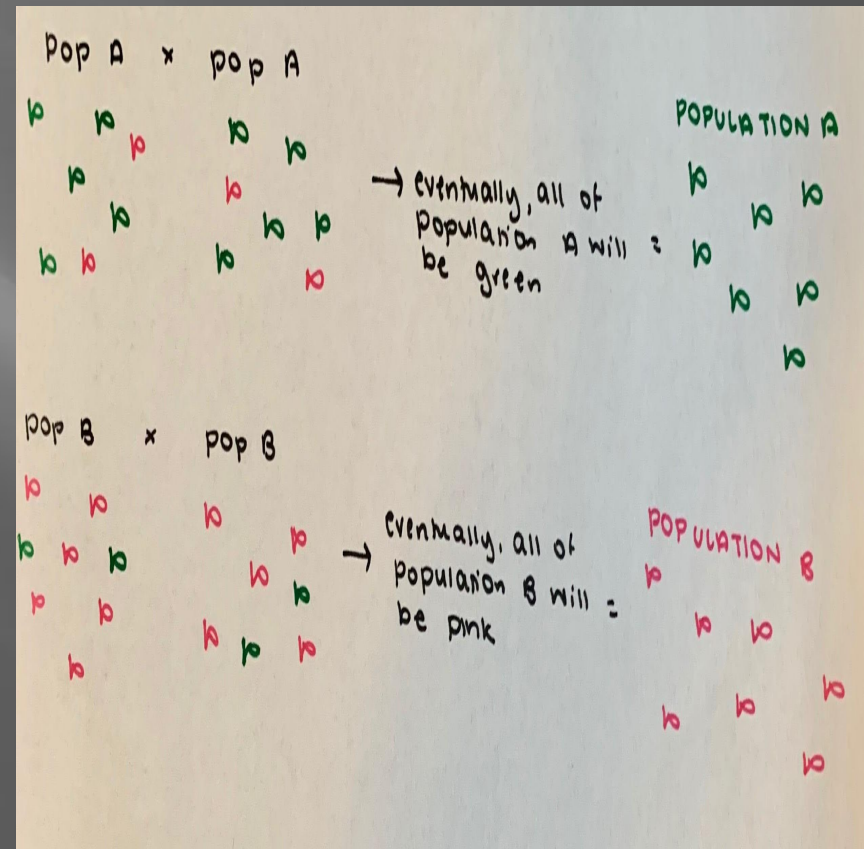 pop A x pop A
→ eventually, all of
population A will =
be green
POPULATION A
pop B x pop B
→ eventually, all of
population B will =
be pink
POPULATION B